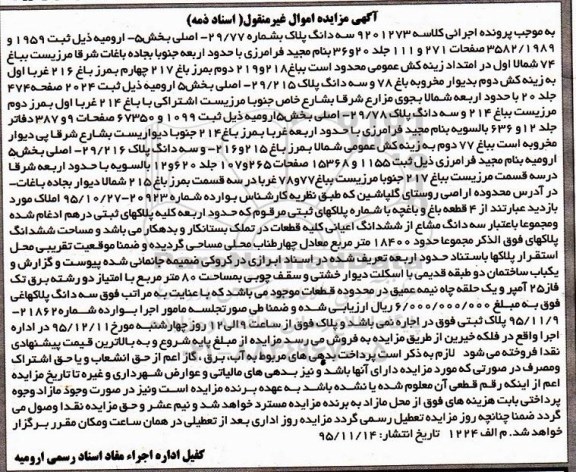 آگهی مزایده اموال غیرمنقول( اسناد ذمه)
به موجب پرونده اجرائی کلاسه ۹۲۰۱۲۷۳ سه دانگ پلاک بشماره ۲۹/۷۷- اصلی بخش۵- ارومیه ذیل ثبت ۱۹۵۹ و
۳۵۸۲/۱۹۸۹ صفحات ۲۷۱ و ۱۱۱ جلد ۲۰و۳۶ بنام مجید فرامرزی با حدود اربعه جنوبا بجاده باغات شرقا مرزیست بباغ
۷۴ شمالا اول در امتداد زینه کش عمومی محدود است بباغ۲۱۸و۲۱۹ دوم بمرز باغ ۲۱۷ چهارم بمرز باغ ۲۱۶ غربا اول
به زینه کش دوم بدیوار مخروبه باغ ۷۸ و سه دانگ پلاک ۲۹/۲۱۵- اصلی بخش۵ ارومیه ذیل ثبت ۲۰۲۴ صفحه۴۷۴
جلد ۲۰ با حدود اربعه شمالا بجوی مزارع شرقا بشارع خاص جنوبا مرزیست اشتراکی با باغ ۲۱۴ غربا اول بمرز دوم
مرزیست بباغ ۲۱۴ و سه دانگ پلاک اصلی بخش۵ارومیه ذیل ثبت ۱۰۹۹ و ۶۷۳۵۰ صفحات ۹ و ۳۸۷ دفاتر
جلد ۱۲ و ۶۳۶ بالسویه بنام مجید فرامرزی با حدود اربعه غربا بمرز باغ۲۱۴ جنوبا دیواریست بشارع شرقا پی دیوار
مخروبه است بباغ ۷۷ دوم به زینه کش عمومی شمالا بمرز باغ ۲۱۵و۲۱۶- و سه دانگ پلاک ۲۹/۲۱۶- اصلی بخش۵
ارومیه بنام مجید فرامرزی ذیل ثبت ۱۱۵۵ و ۱۵۳۶۸ صفحات ۲۶۵و۱۰۷ جلد ۶۲۰و۱۲ بالسویه با حدود اربعه شرقا
درسه قسمت مرزیست بباغ ۲۱۷ جنوبا مرزیست بباغ۷۷و۷۸ غربا در سه قسمت بمرز باغ ۲۱۵ شمالا دیوار بجاده باغات-
در آدرس محدوده اراضی روستای گلپاشین که طبق نظریه کارشناس بوارده شماره ۲۰۹۲۳-۹۵/۱۰/۲۷ املاک مورد
بازدید عبارتند از ۴ قطعه باغ و باغچه با شماره پلاکهای ثبتی مرقوم که حدود اربعه کلیه پلاکهای ثبتی درهم ادغام شده
ومجموعا باعتبار سه دانگ مشاع از ششدانگ اعیانی کلیه قطعات در تملک بستانکار و بدهکار می باشد و مساحت ششدانگ
پلاکهای فوق الذکر مجموعا حدود ۱۸۴۰۰ متر مربع معادل چهارطناب محلی مساحی گردیده و ضمنا موقعیت تقریبی محل
استقرار پلاکها باستناد حدود اربعه تعریف شده در اسناد ابرازی در کروکی ضمیمه جانمائی شده پیوست و گزارش و
یکباب ساختمان دو طبقه قدیمی با اسکلت دیوار خشتی و سقف چوبی بمساحت ۸۰ متر مربع با امتیاز دو رشته برق تک
فاز۲۵ آمپر و یک حلقه چاه نیمه عمیق در محدوده قطعات موجود می باشد که با عنایت به مراتب فوق سه دانگ پلاکهای
فوق به مبلغ ۶/۰۰۰/۰۰۰/۰۰۰ ریال ارزیابی شده و ضمنا طی صورتجلسه مامور اجرا بوارده شماره۲۱۸۶۲-
۹۵/۱۱/۹ پلاک ثبتی فوق در اجاره نمی باشد و پلاک فوق از ساعت ۹الی۱۲ روز چهارشنبه مورخ۹۵/۱۲/۱۱ در اداره
اجرا واقع در فلکه خیرین از طریق مزایده به فروش می رسد مزایده از مبلغ پایه شروع و به بالاترین قیمت پیشنهادی
نقدا فروخته می شود لازم به ذکر است پرداخت بدهی های مربوط به آب، برق، گاز اعم از حق انشعاب و یا حق اشتراک
ومصرف در صورتی که مورد مزایده دارای آنها باشد و نیز بدهی های مالیاتی و عوارض شهرداری و غیره تا تاریخ مزایده
اعم از اینکه رقم قطعی آن معلوم شده یا نشده باشد به عهده برنده مزایده است ونیز در صورت وجود مازاد وجوه
پرداختی بابت هزینه های فوق از محل مازاد به برنده مزایده مسترد خواهد شد و نیم عشر و حق مزایده نقدا وصول می
گردد ضمنا چنانچه روز مزایده تعطیل رسمی گردد مزایده روز اداری بعد از تعطیلی در همان ساعت ومکان مقرر برگزار
خواهد شد. م الف ۱۲۲۴ تاریخ انتشار: ۹۵/۱۱/۱۴
کفیل اداره اجراء مفاد اسناد رسمی ارومیه